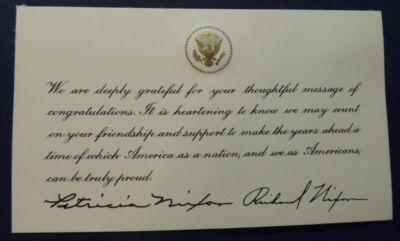 We are deeply grateful for your thoughtful message of
congratulations. It is heartening to know we may count
on your friendship and support to make the years ahead a
time of which America as a nation, and we as Americans,
can be truly proud.
Patricia Nixon Richard Nixon